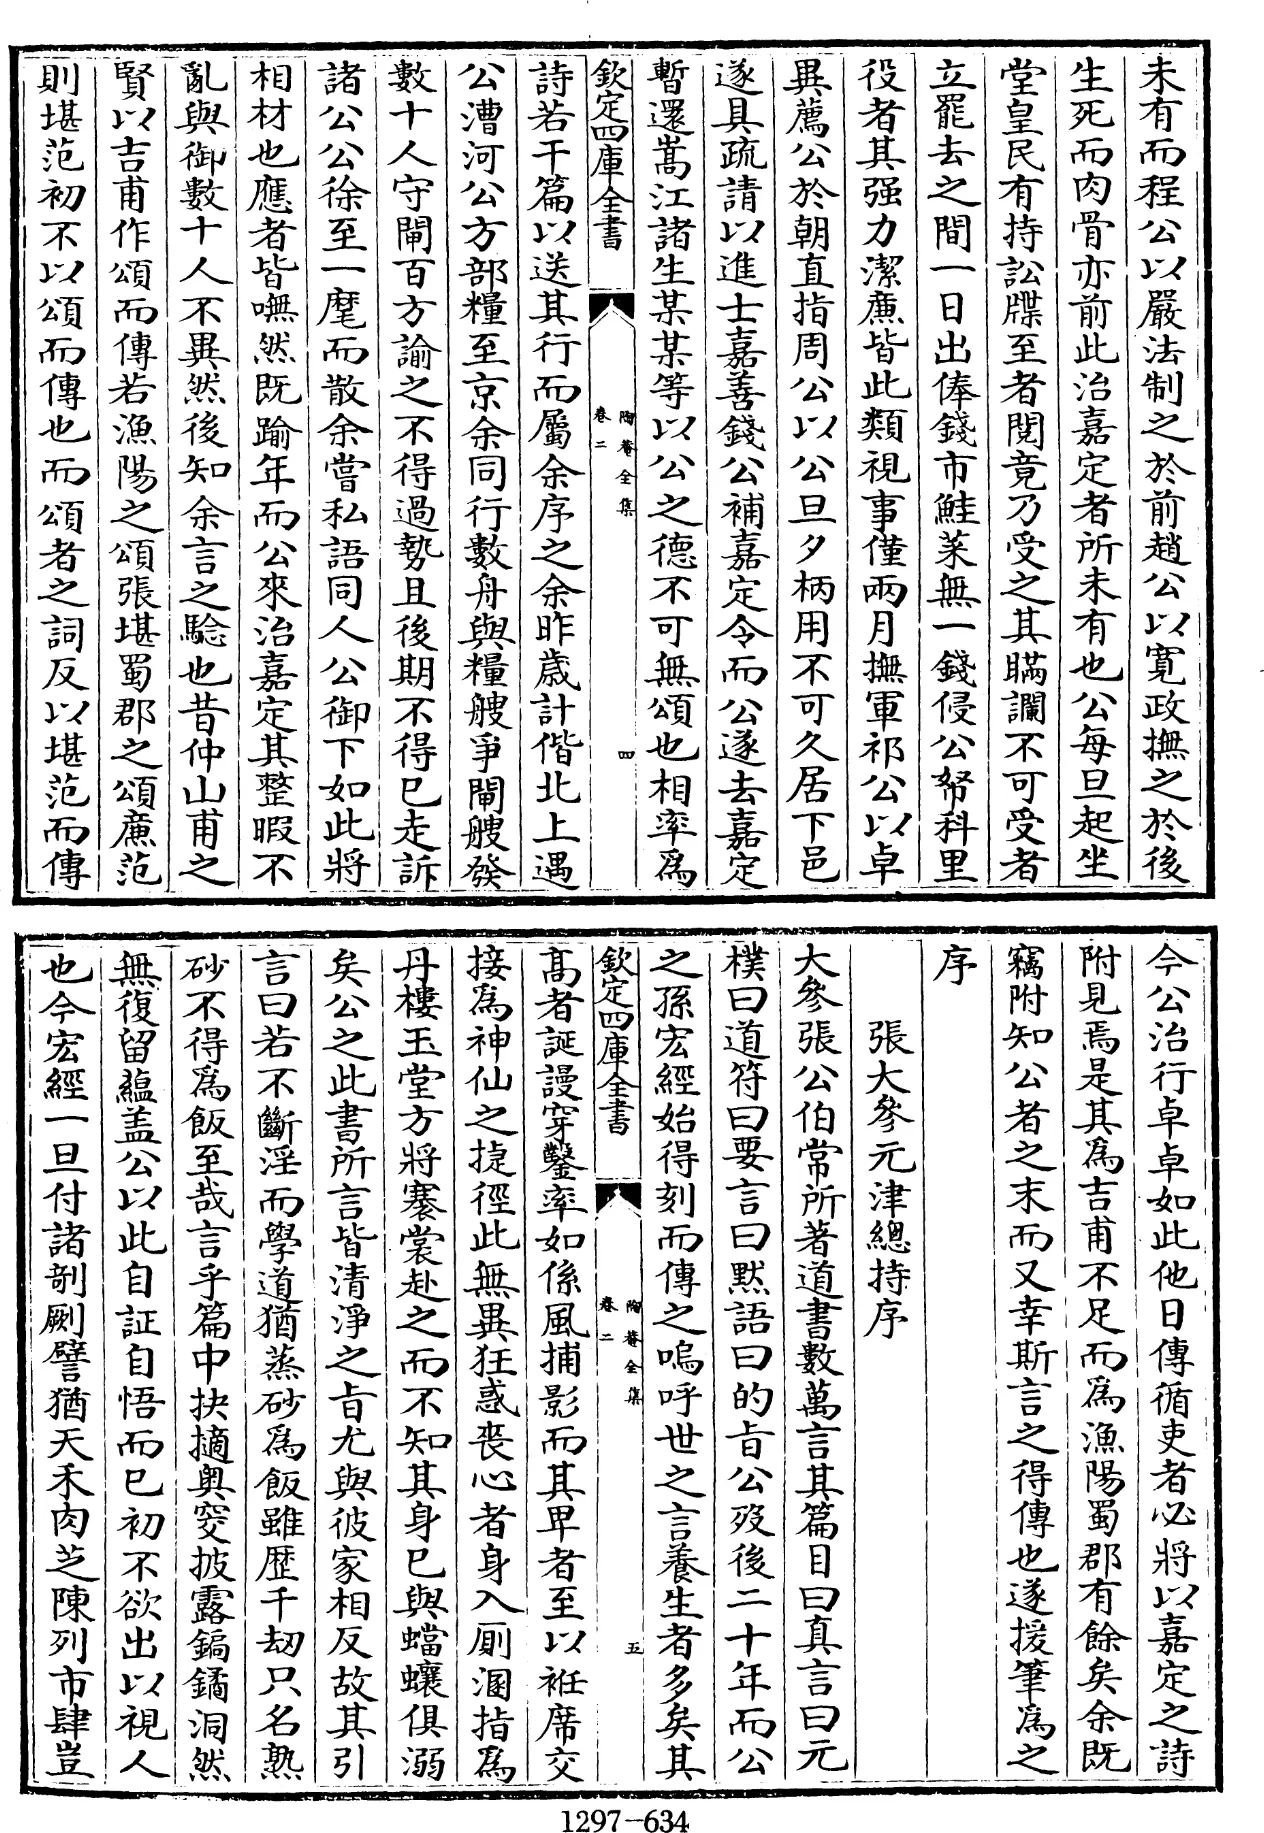 未有而程公以嚴法制之於前趙公以寛政撫之於後
生死而肉骨亦前此治嘉定者所未有也公每旦起坐
堂皇民有持訟牒至者閱竟乃受之其瞞讕不可受者
立罷去之間一日出俸錢市鮭菜無一錢侵公帑科里
役者其强力潔㢘皆此類視事僅兩月撫軍祁公以卓
異薦公於朝直指周公以公旦夕柄用不可久居下邑
遂具疏請以進士嘉善錢公補嘉定令而公遂去嘉定
暫還嵩江諸生某某等以公之德不可無頌也相率為
欽定四庫全書
陶菴全集
卷二
四
詩若干篇以送其行而屬余序之余昨歲計偕北上遇
公漕河公方部糧至京余同行數舟與糧艘爭閘艘發
數十人守閘百方諭之不得過勢且後期不得已走訴
諸公公徐至一麾而散余嘗私語同人公御下如此將
相材也應者皆嘸然既踰年而公來治嘉定其整暇不
亂與御數十人不異然後知余言之驗也昔仲山甫之
賢以吉甫作頌而傳若漁陽之頌張堪蜀郡之頌㢘范
則堪范初不以頌而傳也而頌者之詞反以堪范而傳
今公治行卓卓如此他日傳循吏者必將以嘉定之詩
附見焉是其為吉甫不足而為漁陽蜀郡有餘矣余既
竊附知公者之末而又幸斯言之得傳也遂援筆為之
序
張大參元津總持序
大參張公伯常所著道書數萬言其篇目曰真言曰元
樸曰道符曰要言曰默語曰的旨公歿後二十年而公
之孫宏經始得刻而傳之嗚呼世之言養生者多矣其
欽定四庫全書
陶菴全集
卷二
五
高者誕謾穿鑿率如係風捕影而其卑者至以袵席交
接為神仙之捷徑此無異狂惑喪心者身入厠溷指為
丹樓玉堂方將褰裳赴之而不知其身已與蟷蠰俱溺
矣公之此書所言皆清淨之旨尤與彼家相反故其引
言曰若不斷淫而學道猶蒸砂為飯雖歴千刼只名熟
砂不得為飯至哉言乎篇中抉摘奥窔披露鎬鐍洞然
無復留藴盖公以此自証自悟而已初不欲出以視人
也今宏經一旦付諸剞劂譬猶天禾肉芝陳列市肆豈
1297-634